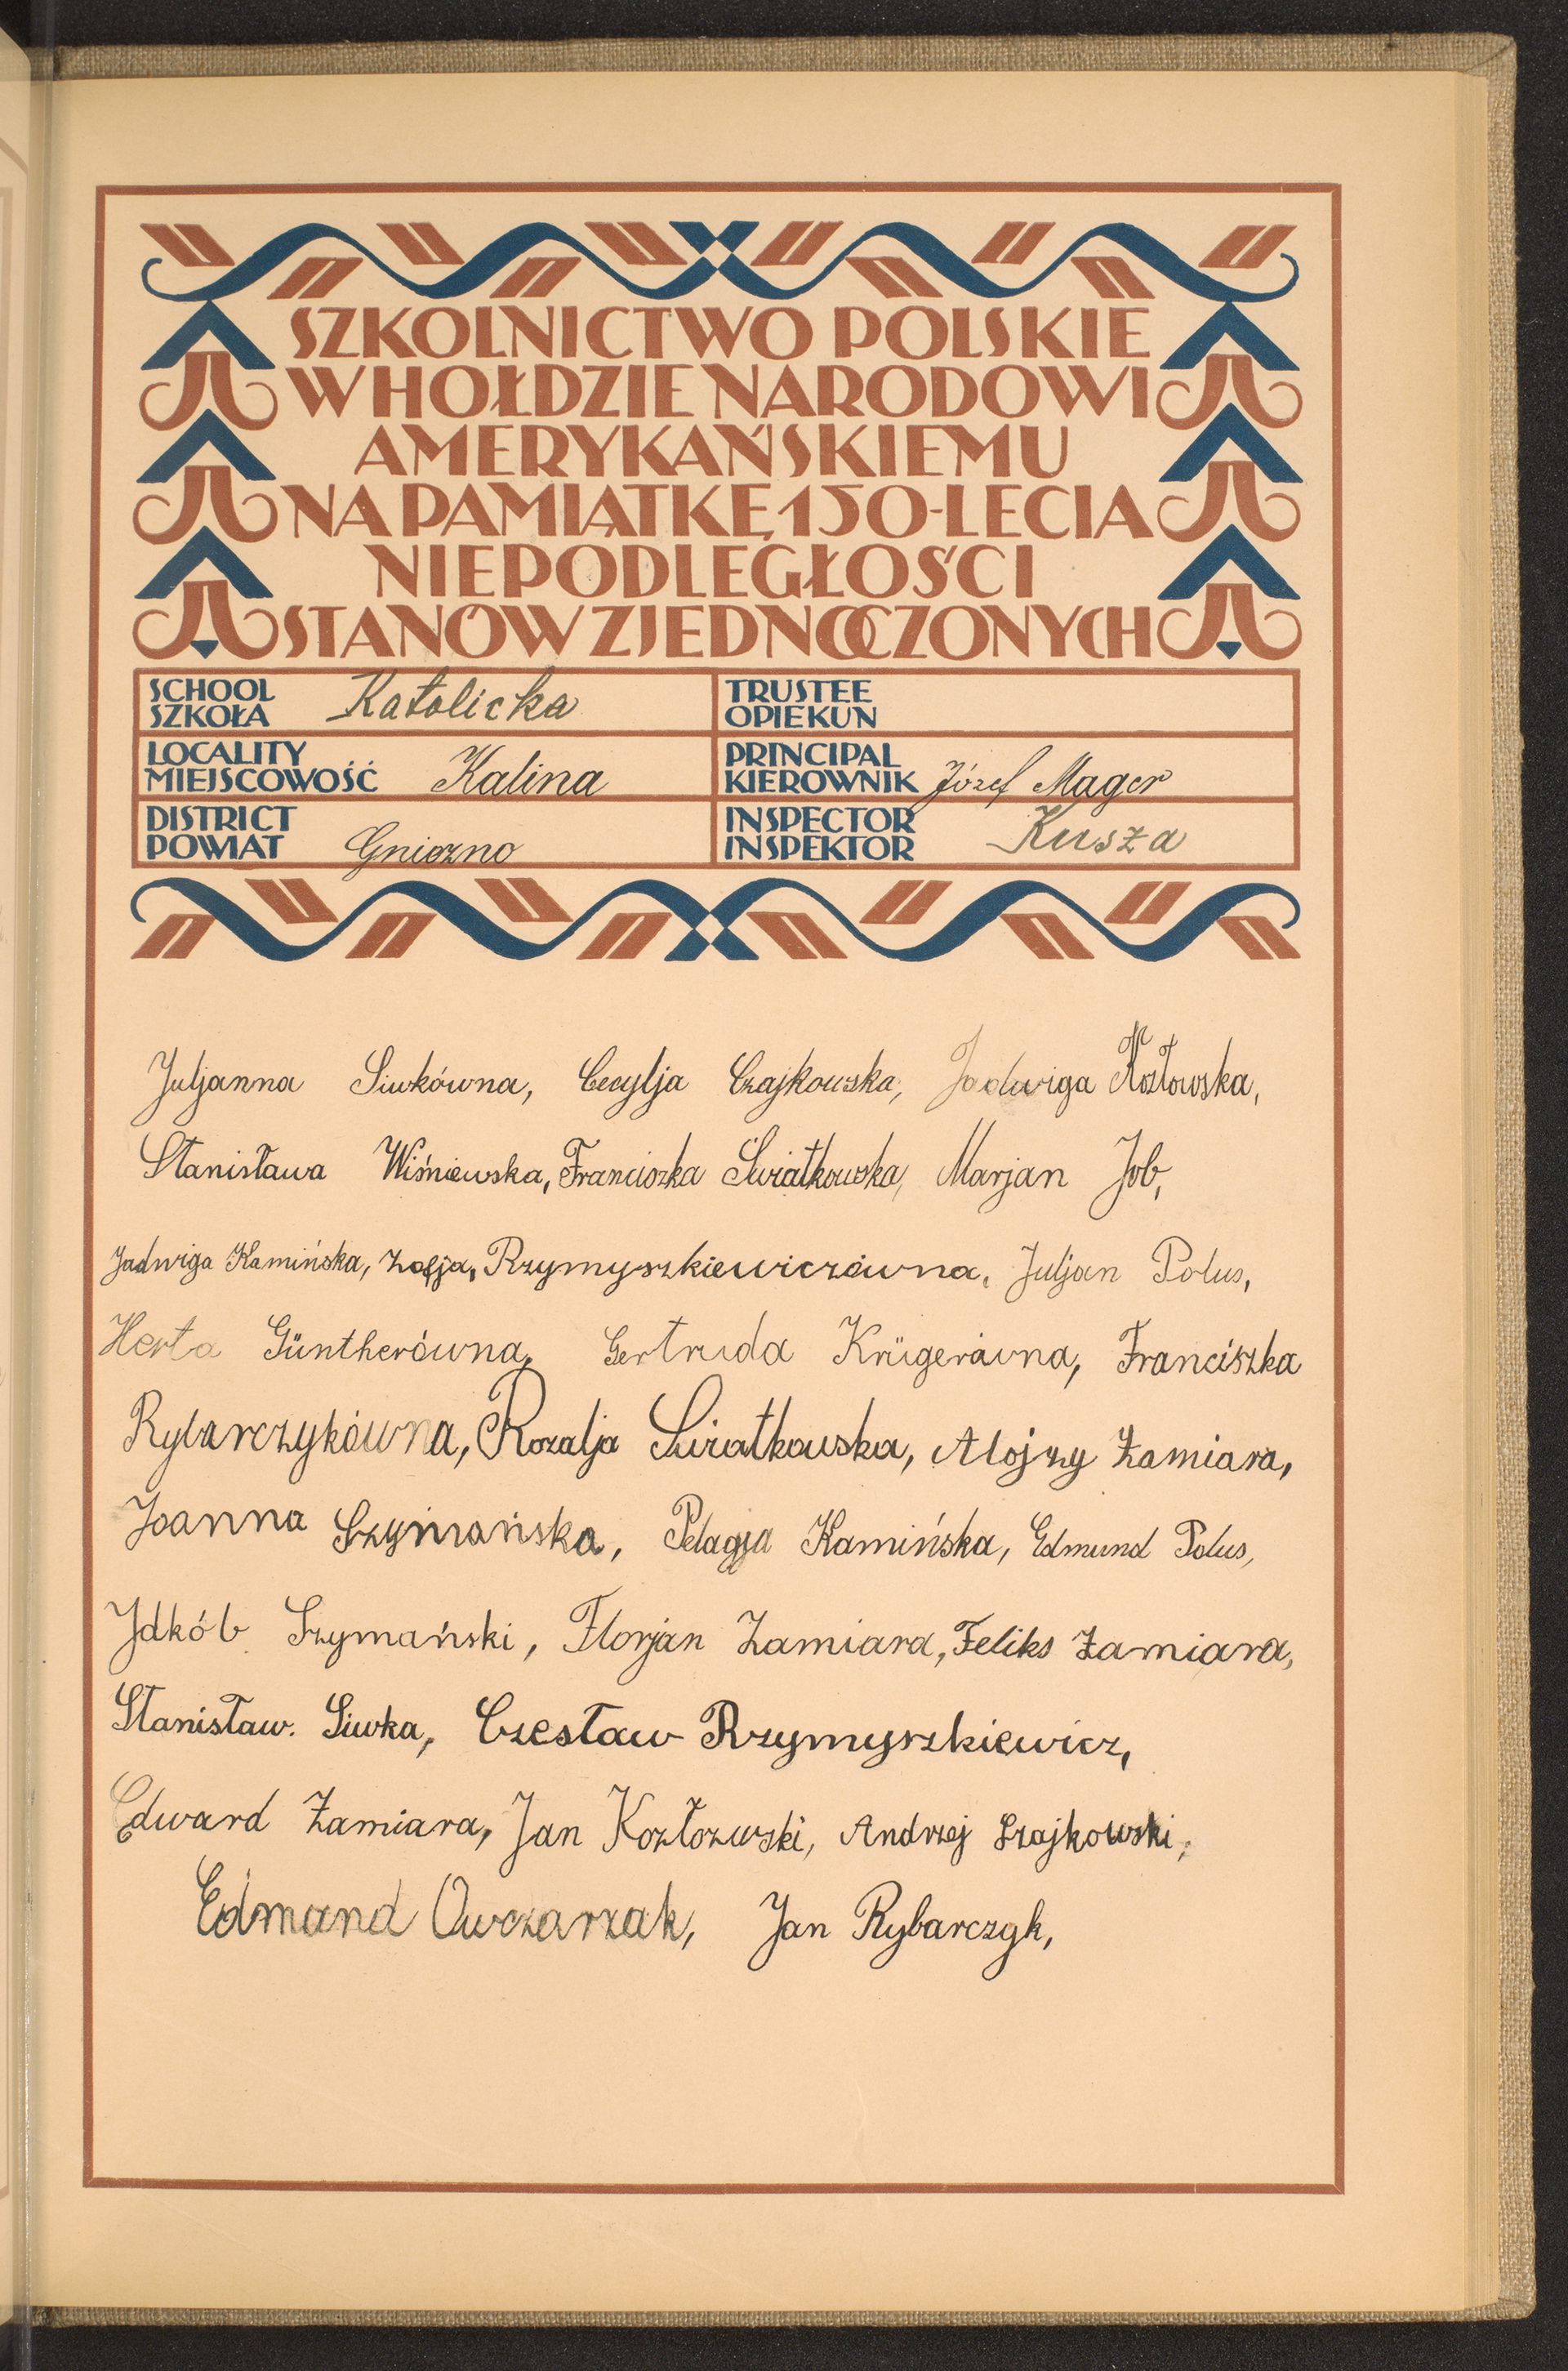 SZKOLNICTWO POLSKIE
W HOŁDZIE NARODOWI
AMERYKAŃSKIEMU
NA PAMIĄTKĘ 150-LECIA
NIEPODLEGŁOŚCI
STANÓW ZJEDNOCZONYCH
SCHOOL
SZKOŁA Katolicka
TRUSTEE
OPIEKUN
LOCALITY
MIEJSCOWOŚĆ Kalina
PRINCIPAL
KIEROWNIK Józef Mager
DISTRICT
POWIAT Gniezno
INSPECTOR
INSPEKTOR Kusza
Juljanna Siwkówna, Cecylja Czajkowska, Jadwiga Kozłowska,
Stanisława Wiśniewska, Franciszka Świątkowska, Marjan Job,
Jadwiga Kamińska, Zofja, Rzymyszkiewiczówna, Juljan Polus,
Herta Güntherówna, Gertruda Krügerówna, Franciszka
Rybarczykówna, Rozalja Świątkowska, Alojzy Żamiara,
Joanna Szymańska, Pelagja Kamińska, Edmund Polus,
Jakób Szymański, Florjan Żamiara, Feliks Żamiara,
Stanisław. Siwka, Czesław Rzymyszkiewicz,
Edward Żamiara, Jan Kozłowski, Andrzej Czajkowski,
Edmund Owczarzak, Jan Rybarczyk,